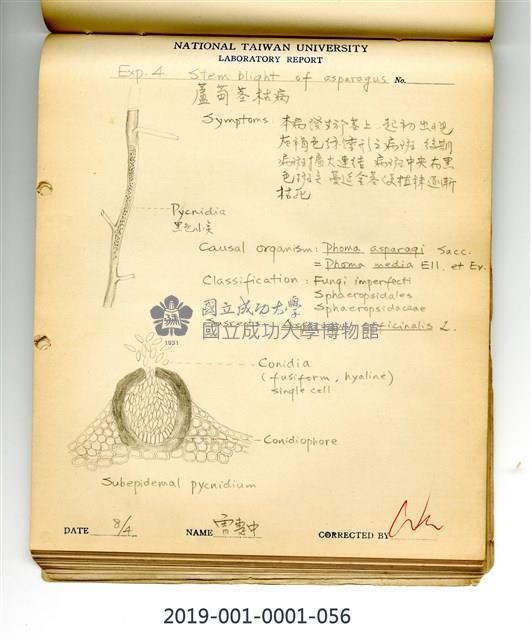 NATIONAL TAIWAN UNIVERSITY
LABORATORY REPORT
Exp. 4 Stem blight of asparagus No.
蘆筍莖枯病
Symptoms: 本病發生於莖上, 起初出現
灰褐色 病斑 後期
病斑擴大連結 病斑中央有黑
色 全莖 植株逐漸
枯死
Pycnidia
黑色小
Causal organism: Phoma asparagi Sacc.
= Phoma media Ell. et Ev.
Classification: Fungi imperfecti
Sphaeropsidales
Sphaeropsidaceae
officinalis L.
國立成功大學
國立成功大學博物館
1931
Conidia
(fusiform, hyaline)
single cell
Conidiophore
Subepidemal pycnidium
DATE 8/4 NAME CORRECTED BY
2019-001-0001-056